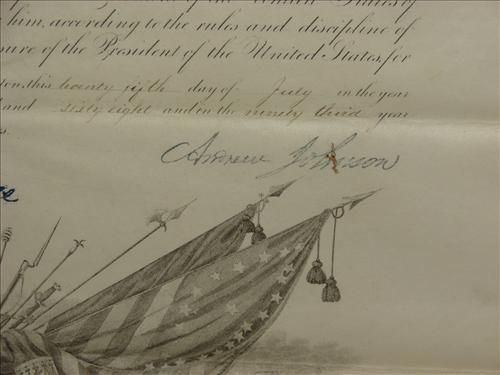 of the United States of
him, according to the rules and discipline of
sure of the President of the United States, for
ton, this twenty fifth day of July in the year
and sixty eight and in the ninety third year
Andrew Johnson